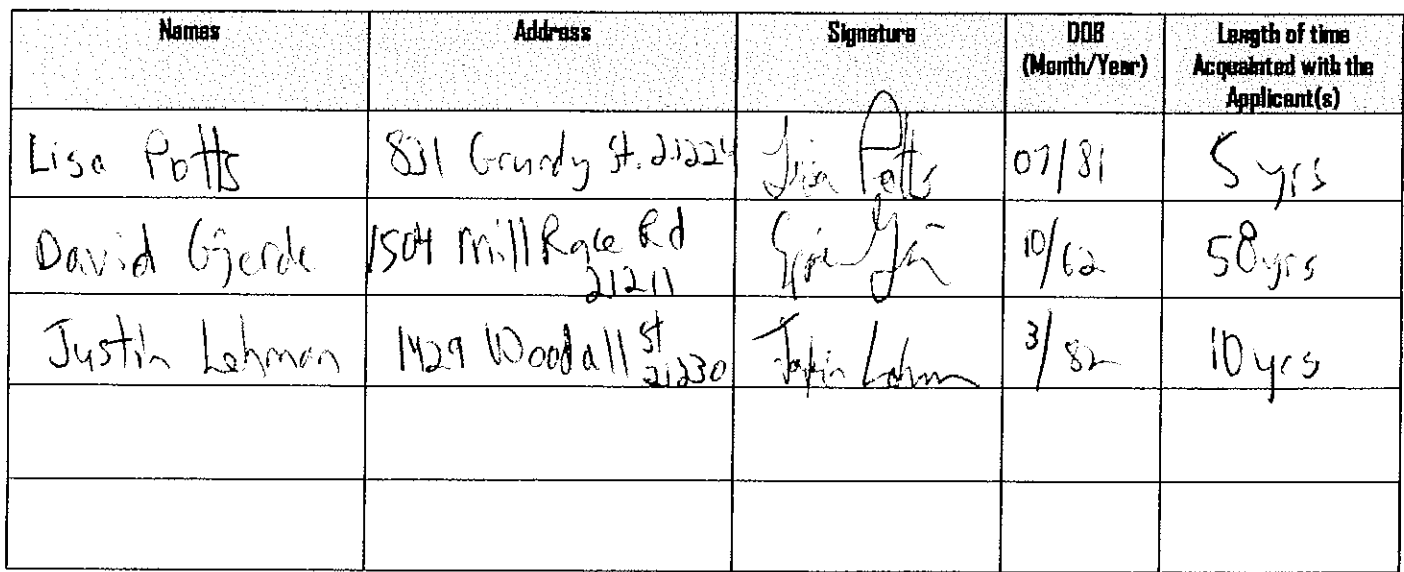 Names Address Signature DOB (Month/Year) Length of time Acquainted with the Applicant(s)
Lisa Potts 831 Grundy St. 21224 Lisa Potts 07/81 5 yrs
David Gjerde 1504 Mill Race Rd 21211 10/62 58 yrs
Justin Lehman 1429 Woodall St 21230 Justin Lehman 3/82 10 yrs